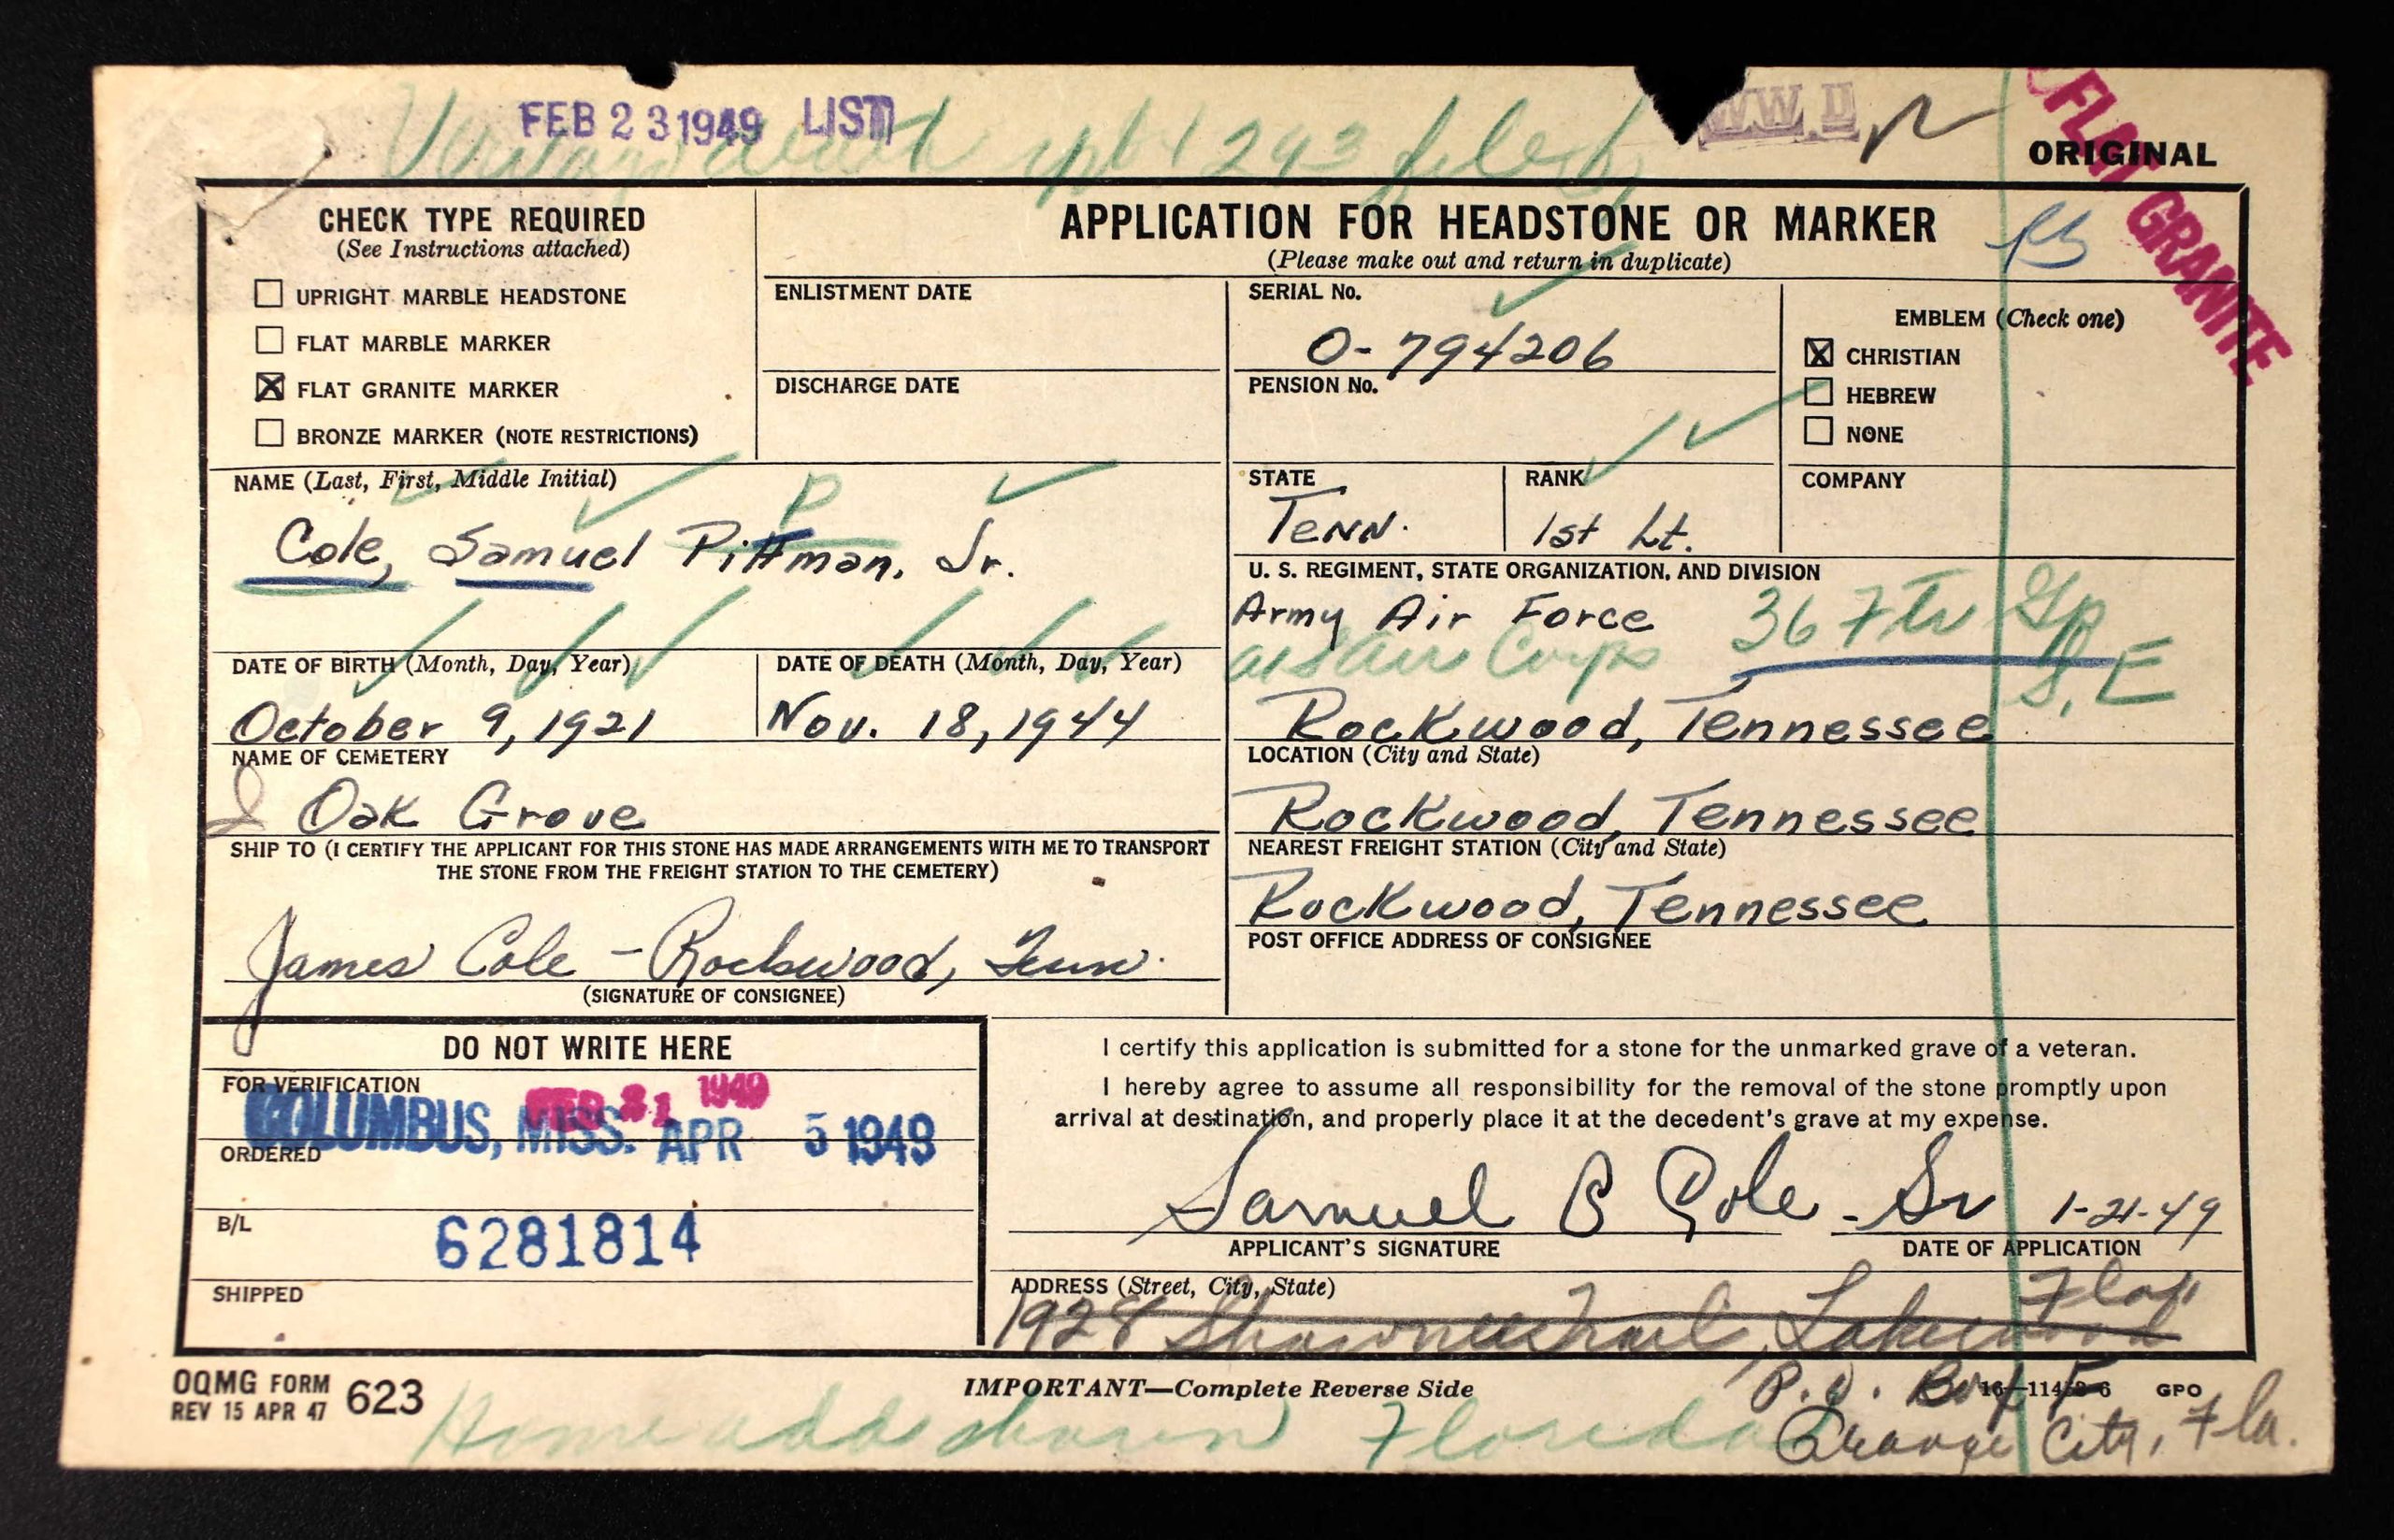 FEB 23 1949 LIST
WW II
ORIGINAL
FLAT GRANITE
death 293 filed
CHECK TYPE REQUIRED
(See Instructions attached)
UPRIGHT MARBLE HEADSTONE
FLAT MARBLE MARKER
X FLAT GRANITE MARKER
BRONZE MARKER (NOTE RESTRICTIONS)
APPLICATION FOR HEADSTONE OR MARKER
(Please make out and return in duplicate)
ENLISTMENT DATE
DISCHARGE DATE
SERIAL No.
O-794206
PENSION No.
EMBLEM (Check one)
X CHRISTIAN
HEBREW
NONE
NAME (Last, First, Middle Initial)
P
Cole, Samuel Pittman, Jr.
STATE
Tenn.
RANK
1st Lt.
COMPANY
U. S. REGIMENT, STATE ORGANIZATION, AND DIVISION
Army Air Force 367 Gp
Air Corps
Rockwood, Tennessee
DATE OF BIRTH (Month, Day, Year)
October 9, 1921
DATE OF DEATH (Month, Day, Year)
Nov. 18, 1944
NAME OF CEMETERY
Oak Grove
LOCATION (City and State)
Rockwood, Tennessee
SHIP TO (I CERTIFY THE APPLICANT FOR THIS STONE HAS MADE ARRANGEMENTS WITH ME TO TRANSPORT
THE STONE FROM THE FREIGHT STATION TO THE CEMETERY)
James Cole - Rockwood, Tenn.
(SIGNATURE OF CONSIGNEE)
NEAREST FREIGHT STATION (City and State)
Rockwood, Tennessee
POST OFFICE ADDRESS OF CONSIGNEE
DO NOT WRITE HERE
FOR VERIFICATION
FEB 21 1949
COLUMBUS, MISS. APR 5 1949
ORDERED
B/L
6281814
SHIPPED
I certify this application is submitted for a stone for the unmarked grave of a veteran.
I hereby agree to assume all responsibility for the removal of the stone promptly upon
arrival at destination, and properly place it at the decedent's grave at my expense.
Samuel P Cole - Sr 1-21-49
APPLICANT'S SIGNATURE
DATE OF APPLICATION
ADDRESS (Street, City, State)
1928 Shawnee Trail, Lakewood Fla
P.O. Box F
Orange City, Fla.
OQMG FORM 623
REV 15 APR 47
IMPORTANT—Complete Reverse Side
GPO
Home add shown Florida